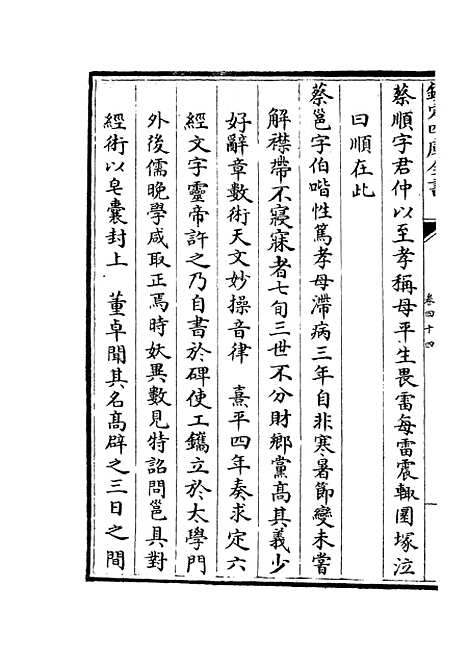 欽定四庫全書
卷四十四
蔡順字君仲以至孝稱母平生畏雷每雷震輒圜塚泣
曰順在此
蔡邕字伯喈性篤孝母滯病三年自非寒暑節變未嘗
解襟帶不寢寐者七旬三世不分財鄉黨高其義少
好辭章數術天文妙操音律 熹平四年奏求定六
經文字靈帝許之乃自書於碑使工鐫立於太學門
外後儒晚學咸取正焉時妖異數見特詔問邕具對
經術以皂囊封上 董卓聞其名高辟之三日之間